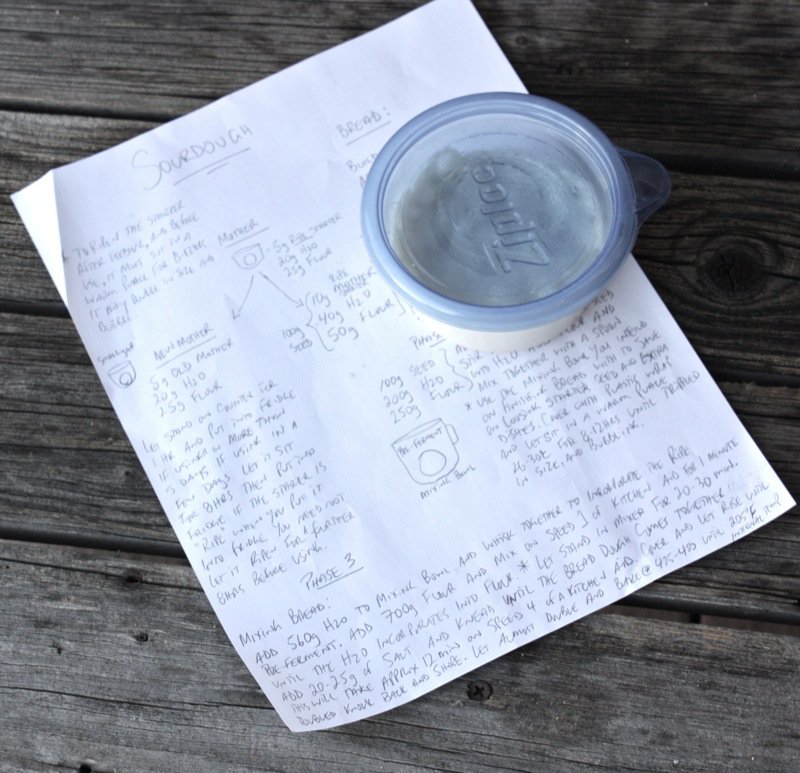 SOURDOUGH
* TO RIPEN THE STARTER
AFTER FEEDING, AND BEFORE
USE, IT MUST SIT IN A
WARM PLACE FOR 8-12HRS
IT MAY DOUBLE IN SIZE AND
BUBBLE
MOTHER
5g RIPE STARTER
20g H2O
25g FLOUR
NEW MOTHER
5g OLD MOTHER
20g H2O
25g FLOUR
100g
SEED
10g RIPE MOTHER
40g H2O
50g FLOUR
LET STAND ON COUNTER FOR
1 HR AND PUT INTO FRIDGE
IF USING IN MORE THAN
5 DAYS. IF USING IN A
FEW DAYS LET IT SIT
FOR 8HRS THEN PUT INTO
FRIDGE. IF THE STARTER IS
RIPE WHEN YOU PUT IT
INTO FRIDGE YOU NEED NOT
LET IT RIPEN FOR FURTHER
8HRS BEFORE USING.
BREAD:
BUILD
100g SEED
200g H2O
250g FLOUR
INTO H2O
MIX TOGETHER WITH A SPOON
* USE THE MIXING BOWL YOU INTEND
ON FINISHING BREAD WITH TO SAVE
ON LOOSING STARTER SEED AND EXTRA
DISHES. COVER WITH PLASTIC WRAP
AND LET SIT IN A WARM PLACE
26-30C FOR 8-12HRS UNTIL TRIPPLED
IN SIZE, AND BUBBLING.
PRE-FERMENT
MIXING BOWL
PHASE 3
MIXING BREAD:
ADD 560g H2O TO MIXING BOWL AND WHISK TOGETHER TO INCORPORATE THE RIPE
PREFERMENT. ADD 700g FLOUR AND MIX ON SPEED 1 OF KITCHEN AID FOR 1 MINUTE
UNTIL THE H2O INCORPORATES INTO FLOUR * LET STAND IN MIXER FOR 20-30 MIN.
ADD 20-25g OF SALT AND KNEAD UNTIL THE BREAD DOUGH COMES TOGETHER
THIS WILL TAKE APPROX 12 MIN ON SPEED 4 OF A KITCHEN AID COVER AND LET RISE UNTIL
DOUBLED KNOCK BACK AND SHAPE. LET ALMOST DOUBLE AND BAKE @ 425-450 UNTIL 205°F
INTERNAL TEMP
Ziploc